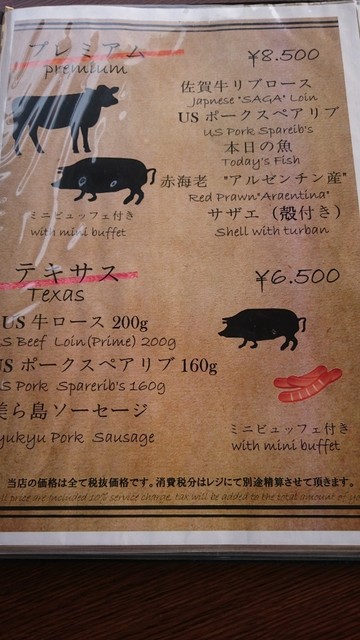 プレミアム
premium
¥8.500
佐賀牛リブロース
Japnese "SAGA" Loin
US ポークスペアリブ
US Pork Spareib's
本日の魚
Today's Fish
赤海老 "アルゼンチン産"
Red Prawn"Araentina"
サザエ（殻付き）
Shell with turban
ミニビュッフェ付き
with mini buffet
テキサス
Texas
¥6.500
US 牛ロース 200g
S Beef Loin(Prime) 200g
US ポークスペアリブ 160g
S Pork Sparerib's 160g
美ら島ソーセージ
yukyu Pork Sausage
ミニビュッフェ付き
with mini buffet
当店の価格は全て税抜価格です。消費税分はレジにて別途精算させて頂きます。
all price are included 10% service charge, tax will be added to the total amount of